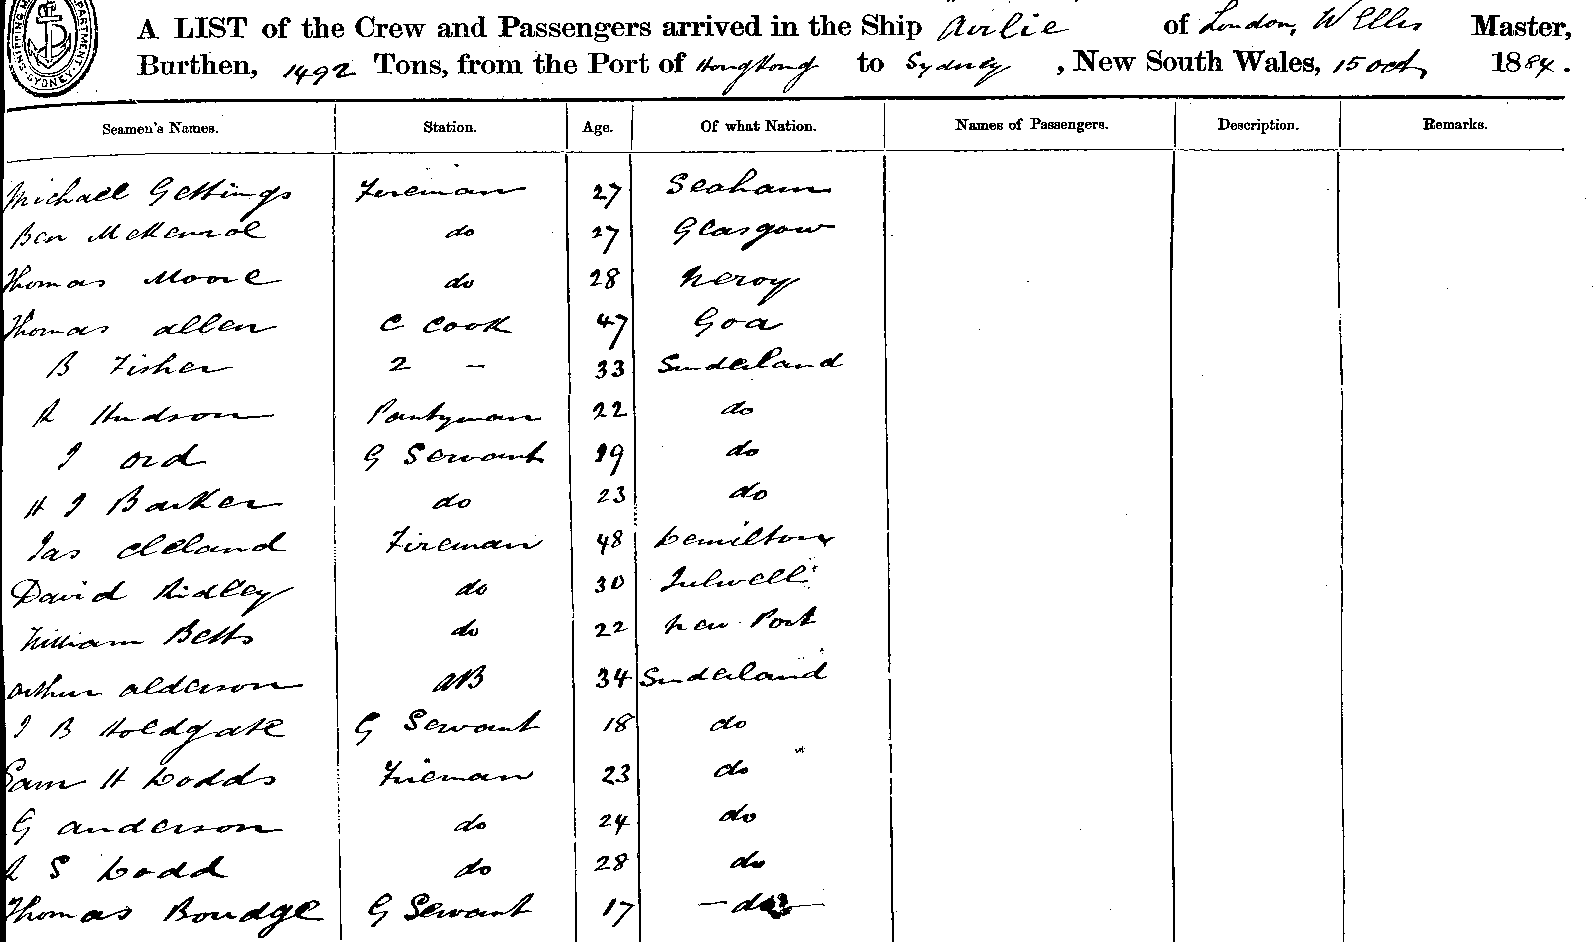 A LIST of the Crew and Passengers arrived in the Ship Airlie of London, W Ellis Master,
Burthen, 1492 Tons, from the Port of Hong Kong to Sydney, New South Wales, 15 Oct, 1884.
Seamen's Names. Station. Age. Of what Nation. Names of Passengers. Description. Remarks.
Michael Gettings Fireman 27 Seaham
Ben do 27 Glasgow
Thomas Moore do 28
Thomas Allen C Cook 47 Goa
B Fisher 2 — 33 Sunderland
R Hudson Pantryman 22 do
J Ord G Servant 19 do
H J Barker do 23 do
Jas Cleland Fireman 48
David Ridley do 30
William Betts do 22 New Port
Arthur Alderson AB 34 Sunderland
J B Holdgate G Servant 18 do
Sam H Dodds Fireman 23 do
G Anderson do 24 do
R S Dodd do 28 do
Thomas Boudge G Servant 17 — do —